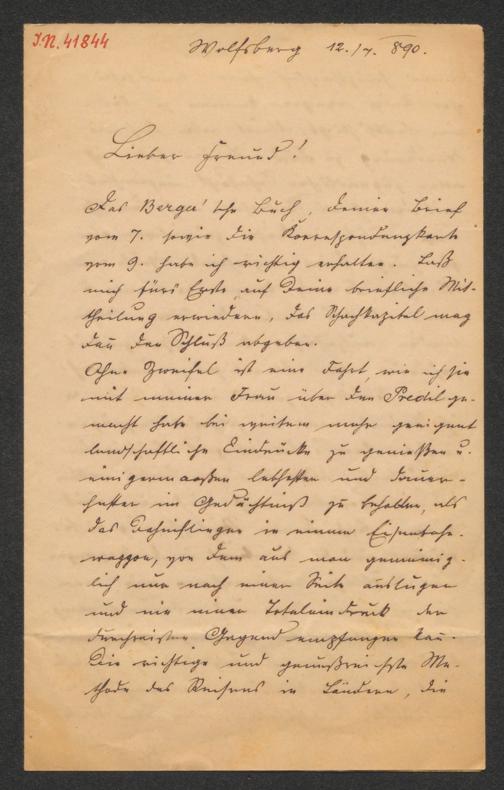 J.N. 41844
Wolfsberg 12./7. 890.
Lieber Freund!
Das Berger'sche Buch, Deinen Brief
vom 7. sowie die Korrespondenzkarte
vom 9. habe ich richtig erhalten. Laß
mich fürs Erste auf Deine briefliche Mit-
theilung erwiedern, das Schachkapitel mag
dañ den Schluß abgeben.
Ohne Zweifel ist eine Fahrt, wie ich sie
mit meiner Frau über den Predil ge-
macht habe bei weitem mehr geeignet
landschaftliche Eindrücke zu genießen u.
einigermaaßen lebhafter und dauer-
hafter im Gedächtniß zu behalten, als
das Dahinfliegen in einem Eisenbahn-
waggon, von dem aus man gemeinig-
lich nur nach einer Seite auslugen
und nie einen Totaleindruck der
durchreisten Gegend empfangen kañ.
Die richtige und genußreichste Me-
thode des Reisens in Ländern, die